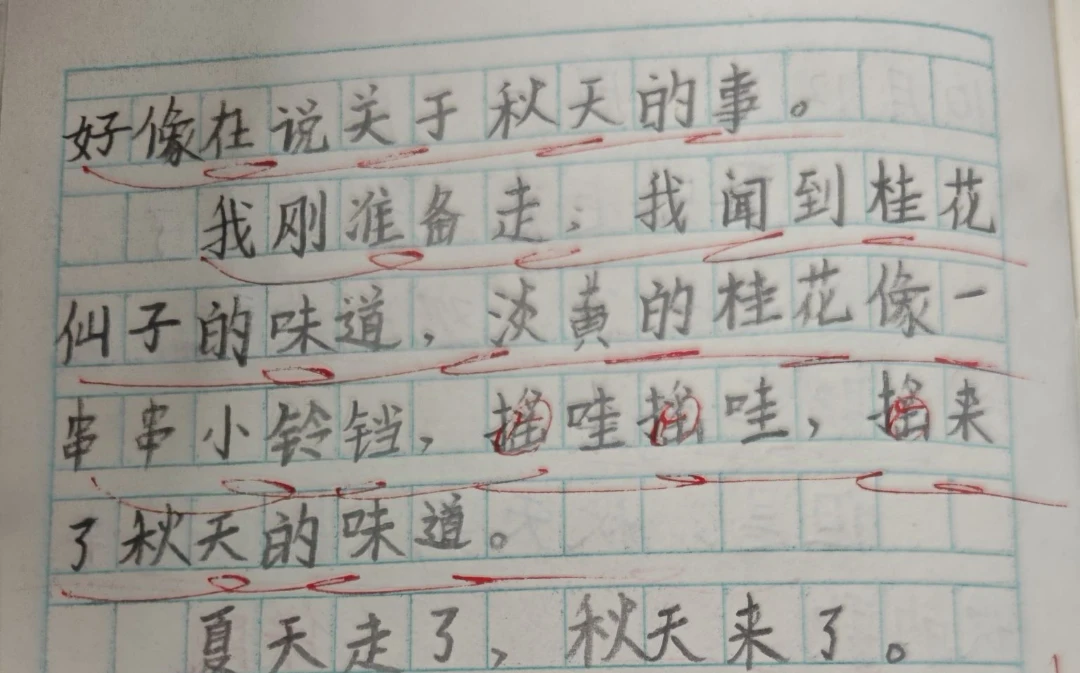 好像在说关于秋天的事。
我刚准备走，我闻到桂花
仙子的味道，淡黄的桂花像一
串串小铃铛，摇哇摇哇，摇来
了秋天的味道。
夏天走了，秋天来了。